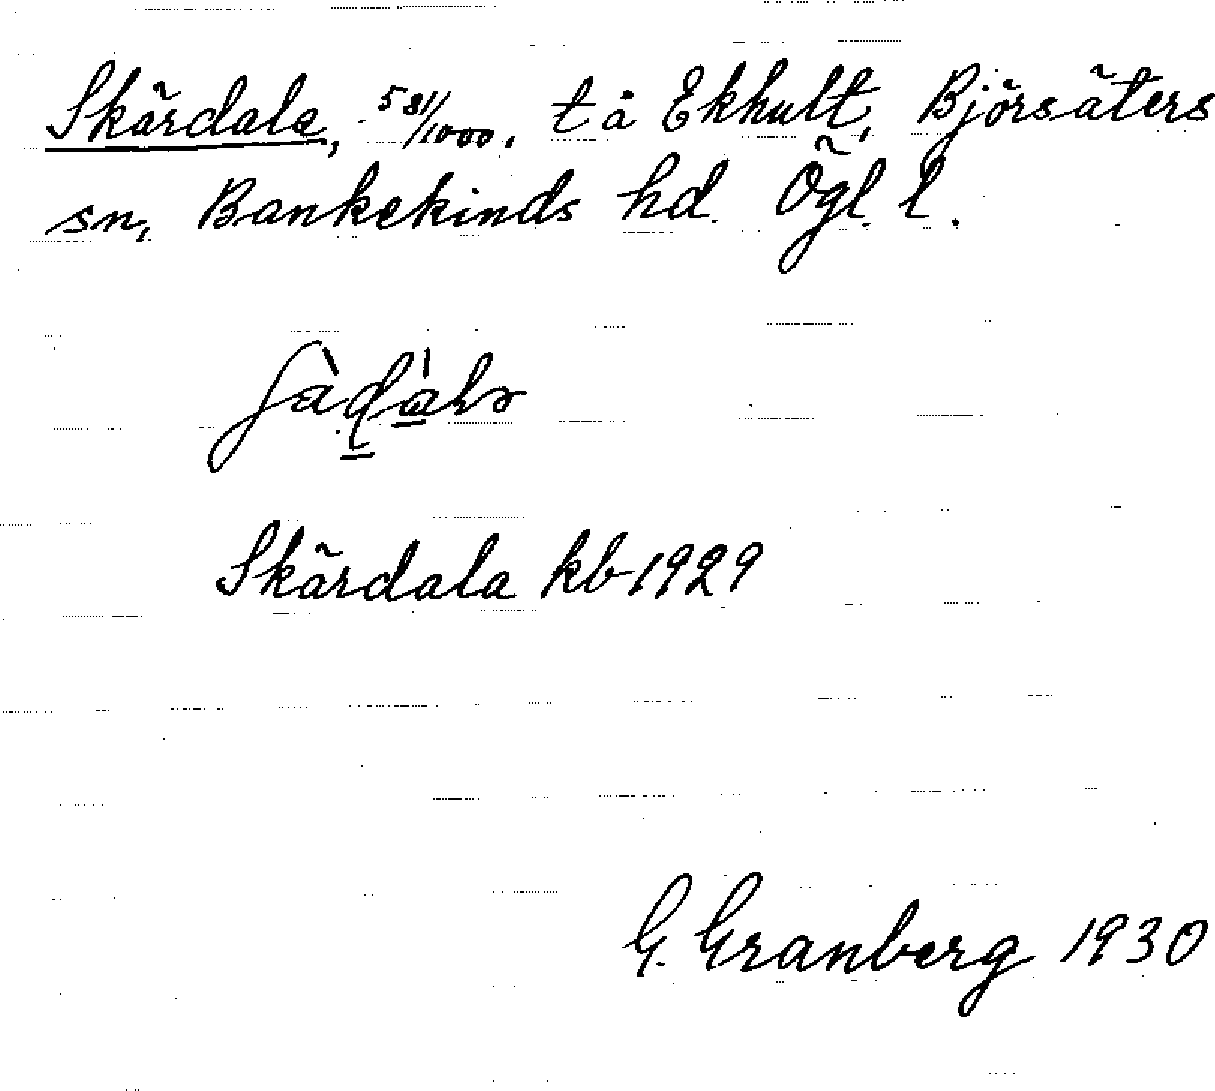 Skärdala, 58/1000, t å Ekhult, Björsäters
sn, Bankekinds hd. Ögl. l.
Skärdala kb 1929
G. Granberg 1930